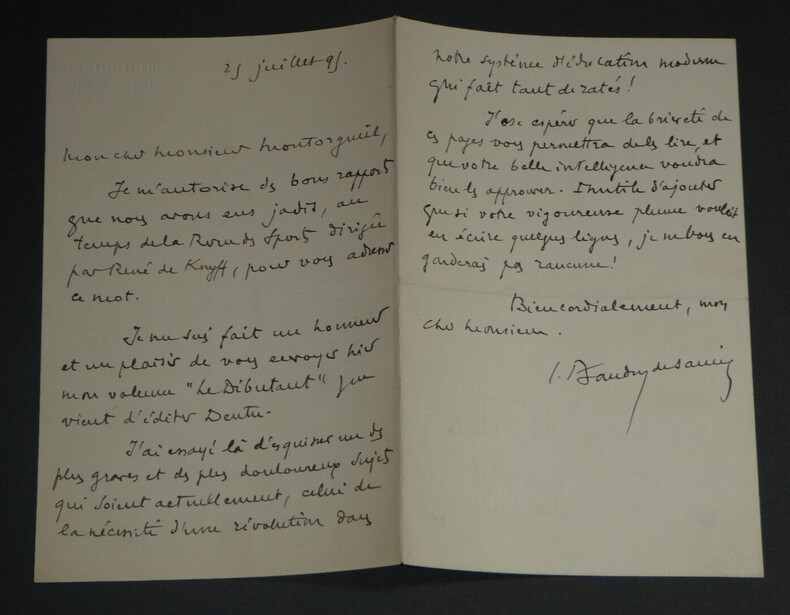 25 juillet 95.
Mon cher Monsieur Montorgueil,
Je m'autorise des bons rapports
que nous avons eus jadis, au
temps de la Revue des Sports dirigée
par René de Knyff, pour vous adresser
ce mot.
Je me suis fait un honneur
et un plaisir de vous envoyer hier
mon volume "Le Débutant" que
vient d'éditer Dentu.
J'ai essayé là d'esquisser un des
plus graves et des plus douloureux sujets
qui soient actuellement, celui de
la nécessité d'une révolution dans
notre système d'éducation moderne
qui fait tant de ratés !
J'ose espérer que la brièveté de
ces pages vous permettra de les lire, et
que votre belle intelligence voudra
bien les approuver. Inutile d'ajouter
que si votre vigoureuse plume voulait
en écrire quelques lignes, je ne vous en
garderais pas rancune !
Bien cordialement, mon
cher Monsieur.
L. Baudry de Saunier